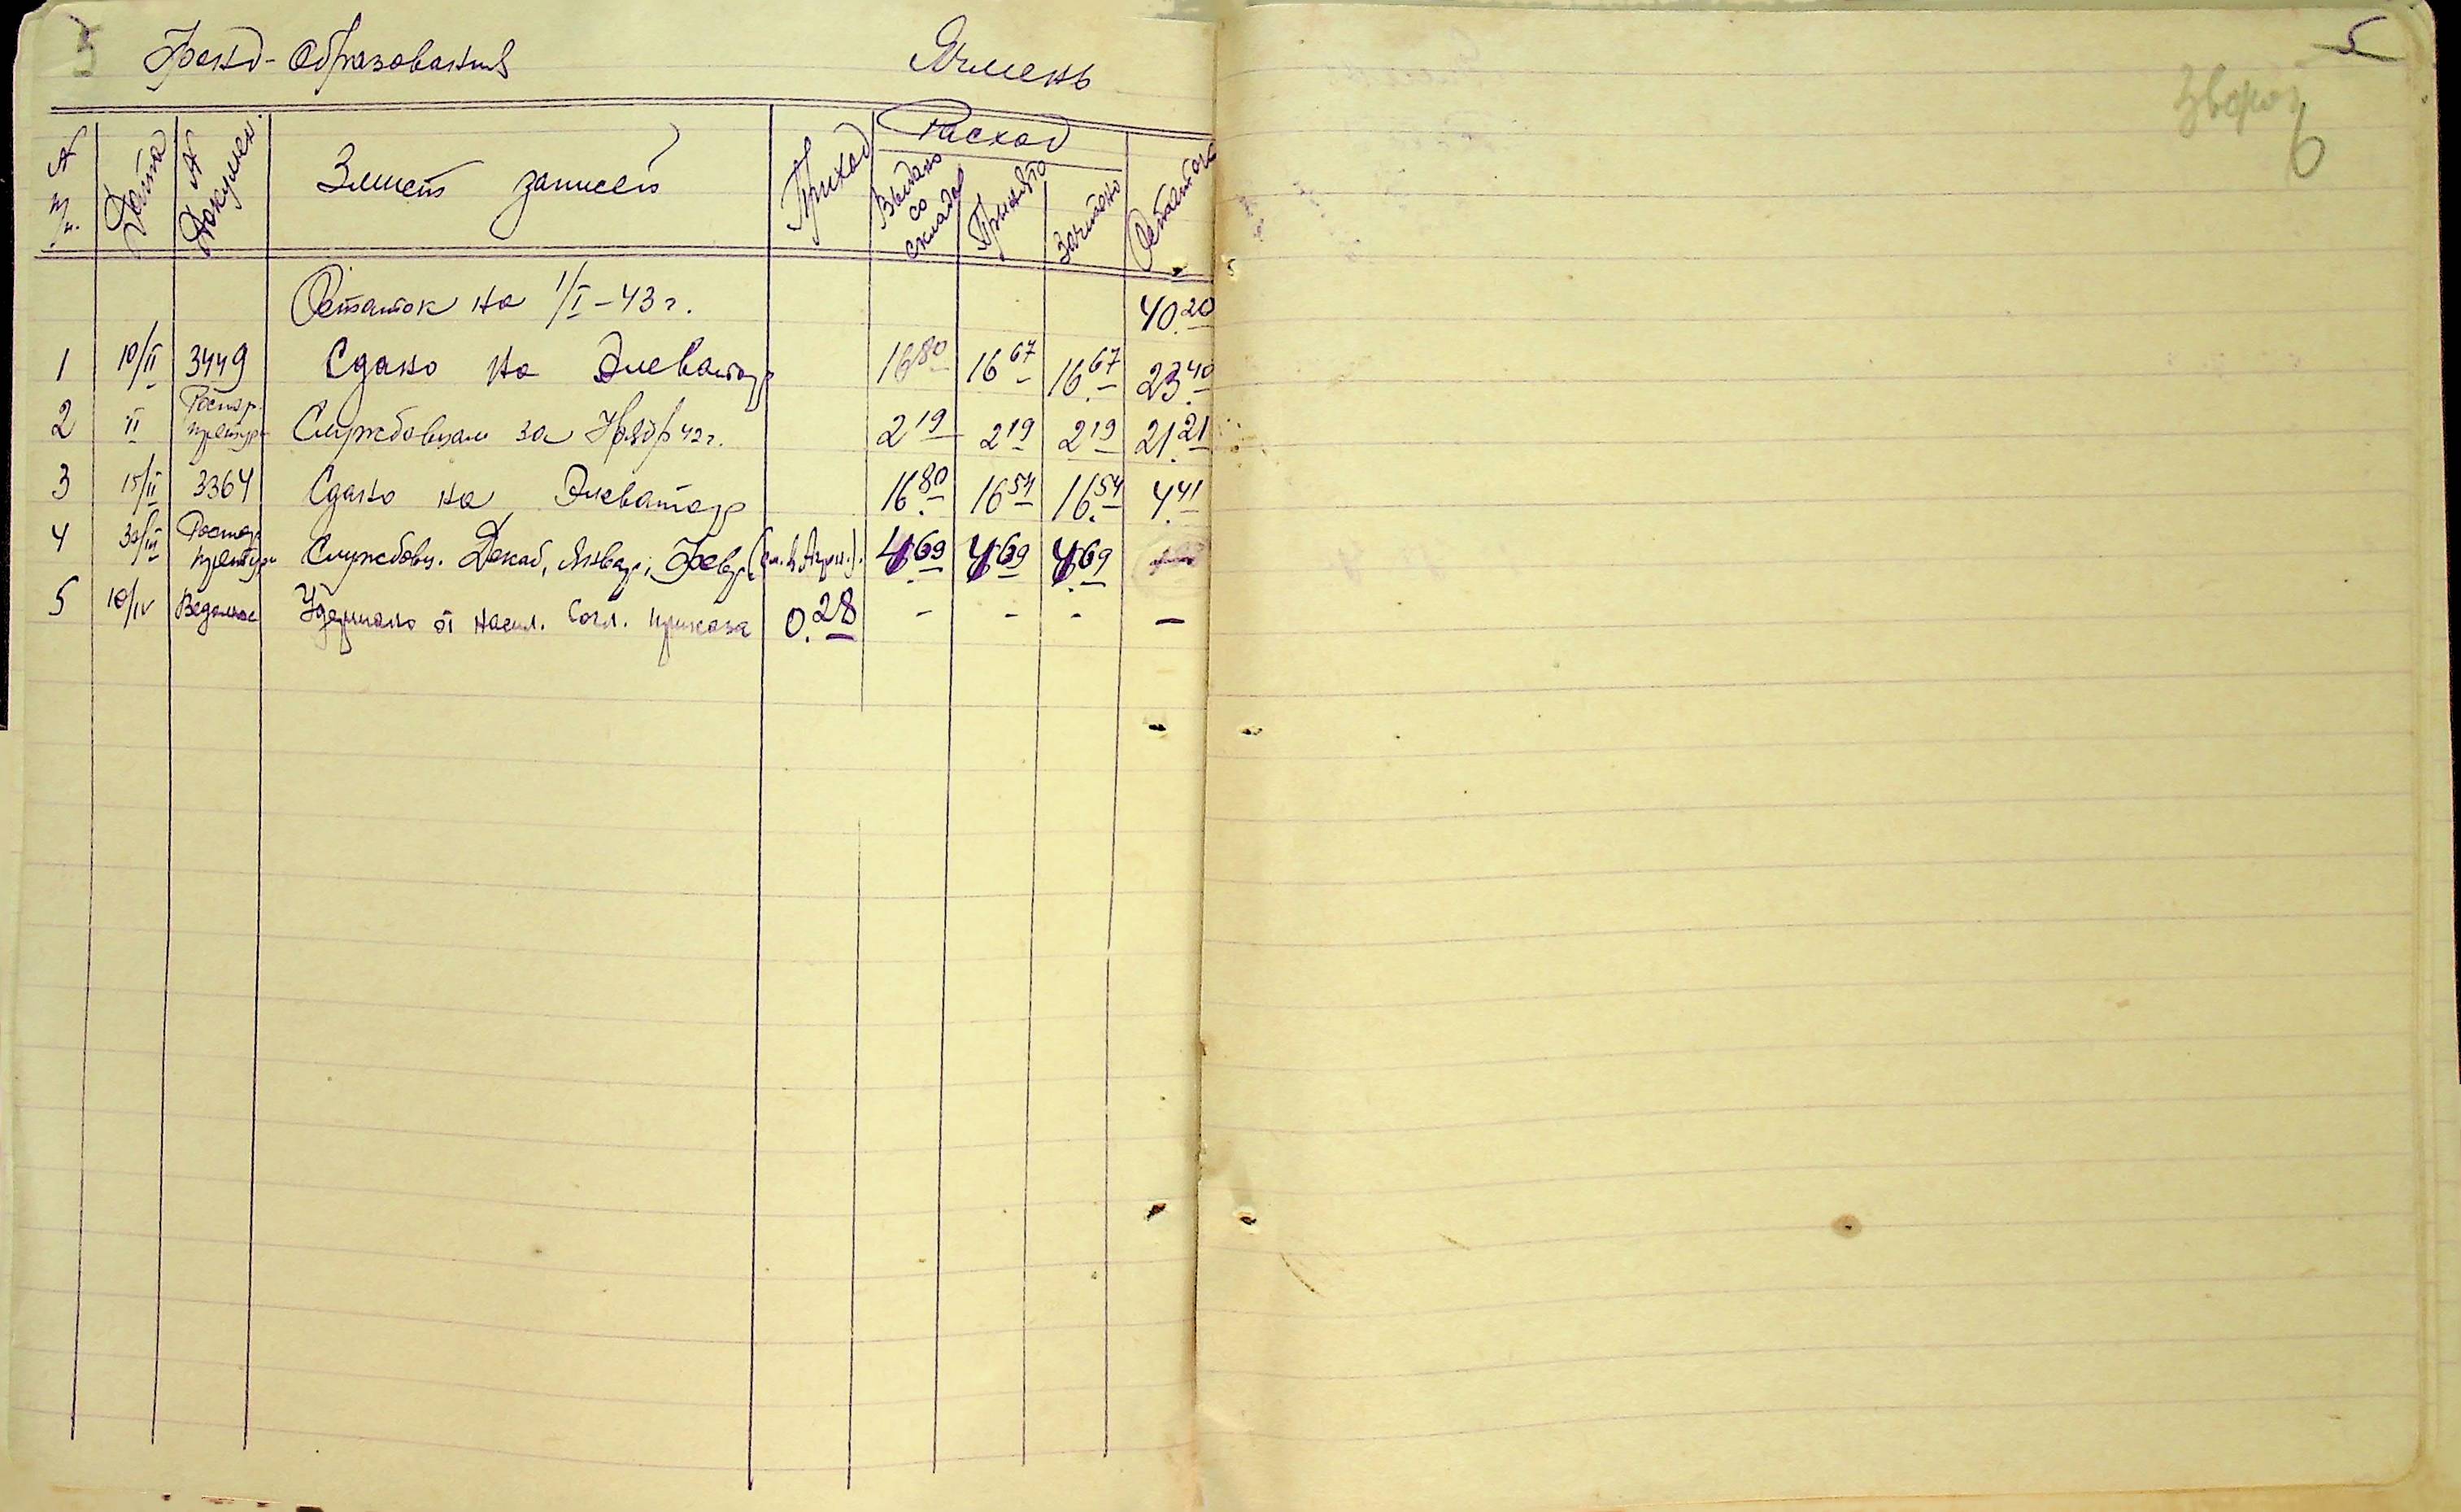 5 Фонд-Образования Ячмень
№ п/п. Дата № Докумен. Зміст записей Приход Расход Остаток
Выдано со склада Принято Зачтено
Остаток на 1/I-43 г. 40.20
1 10/II 3449 Сдано на Элеватор 16 80 16 67 16.67 23.40
2 II Распор. Службовцам за Нояб 42 г. 2 19 2 19 2 19 21.21
3 15/II 3364 Сдано на Элеватор 16.80 16 54 16.54 4.41
4 30/III Службовц. Декаб, Январ, Февр. 4.69 4 69 4.69
5 10/IV Удержано от насел. Согл. приказа 0.28 - - - -
5
Зворот
6